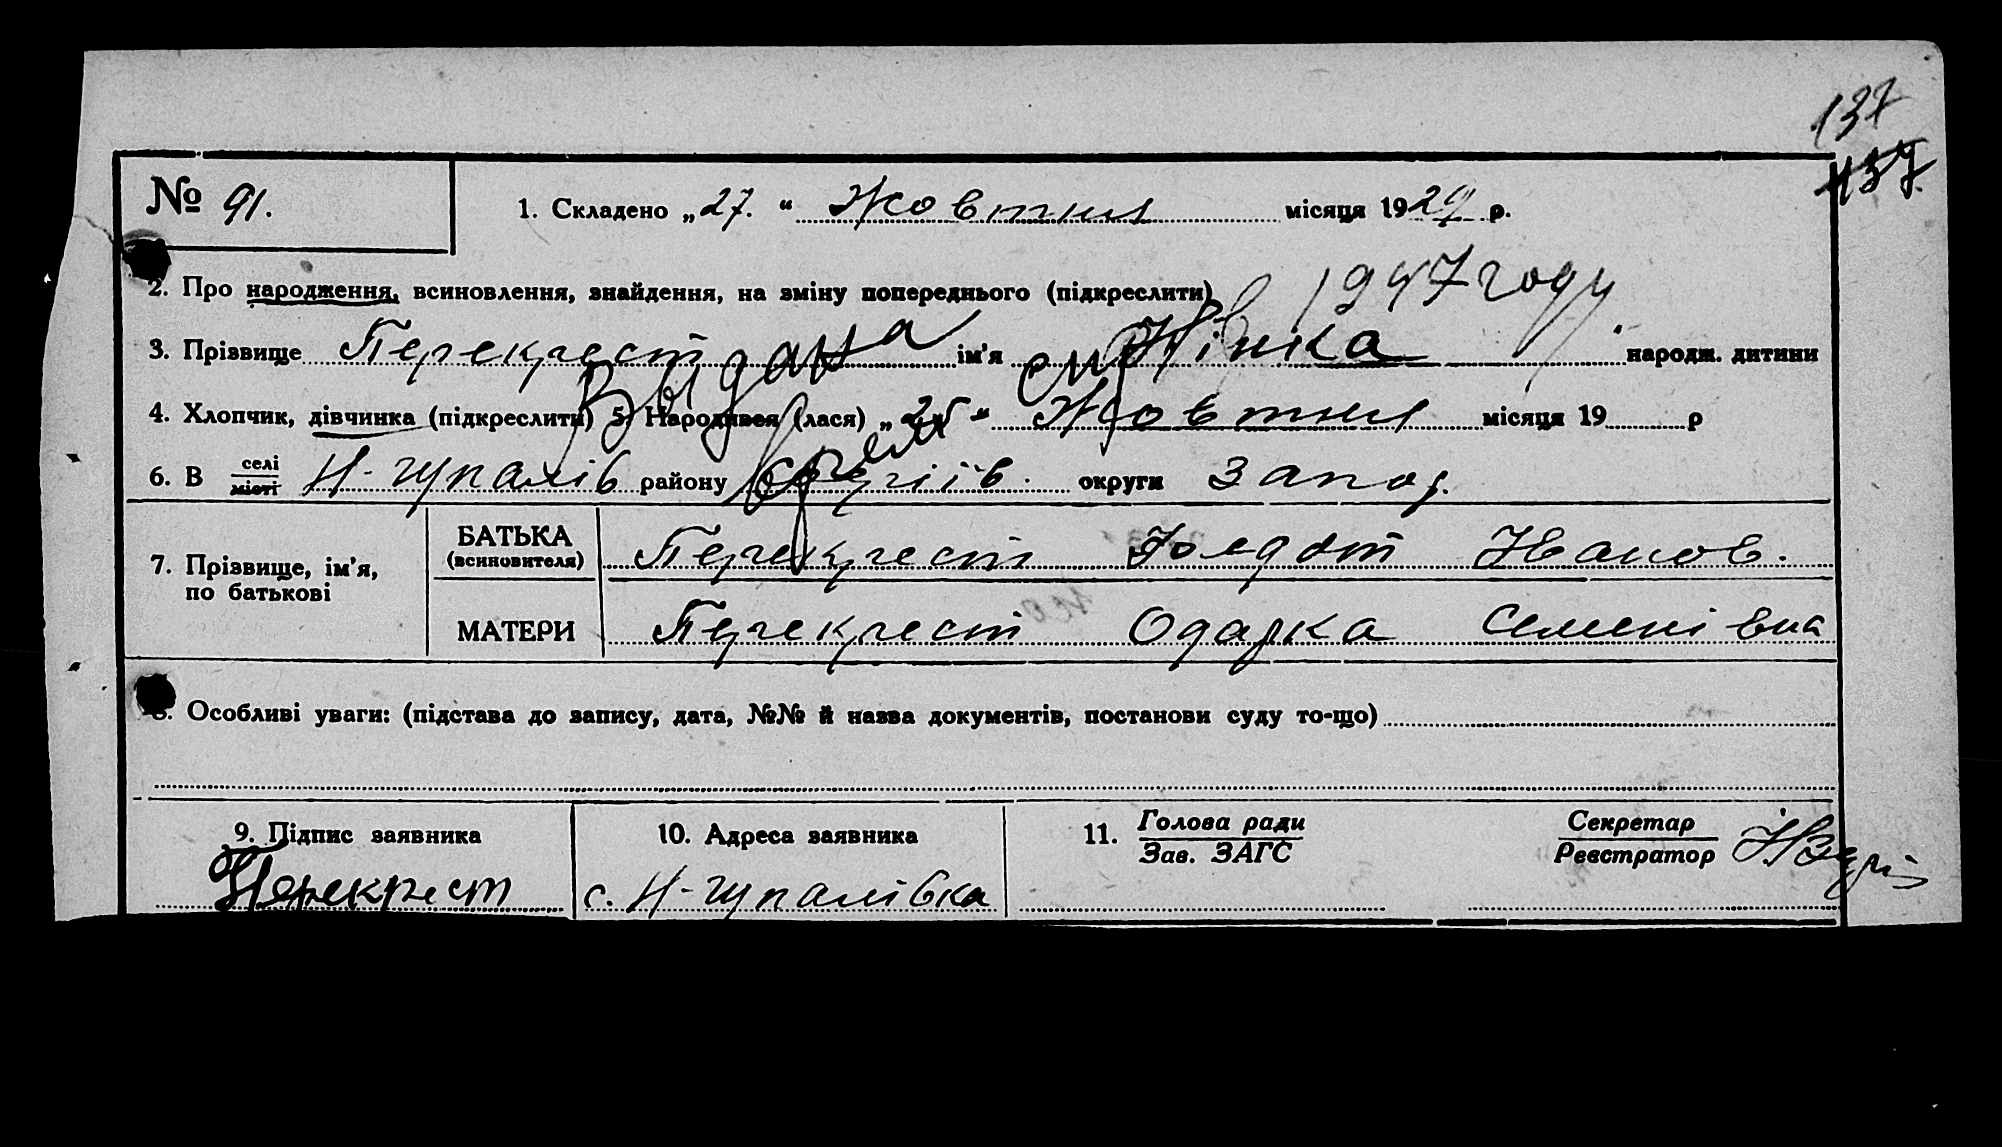 137
137
№ 91.
1. Складено „27.“ Жовтня місяця 1929 р.
2. Про народження, всиновлення, знайдення, на зміну попереднього (підкреслити)
в 1947 году
3. Прізвище Перекрест ім'я Нінка народж. дитини
Выдана
4. Хлопчик, дівчинка (підкреслити) 5. Народився (лася) „25“ Жовтня місяця 19 р
6. В селі міоті Н-Гупалів району округи Запор.
7. Прізвище, ім'я, по батькові
БАТЬКА (всиновителя) Перекрест Іванов.
МАТЕРИ Перекрест Одарка Семенівна
8. Особливі уваги: (підстава до запису, дата, №№ й назва документів, постанови суду то-що)
9. Підпис заявника
Перекрест
10. Адреса заявника
с. Н-Гупалівка
11. Голова ради
Зав. ЗАГС
Секретар
Реєстратор